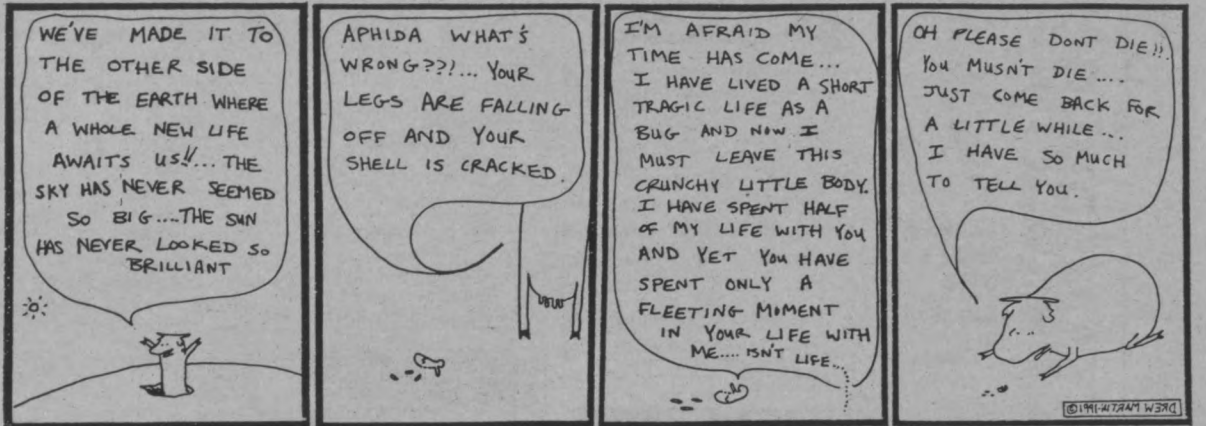 WE'VE MADE IT TO
THE OTHER SIDE
OF THE EARTH WHERE
A WHOLE NEW LIFE
AWAITS US!!... THE
SKY HAS NEVER SEEMED
SO BIG....THE SUN
HAS NEVER LOOKED SO
BRILLIANT
APHIDA WHAT'S
WRONG??!... YOUR
LEGS ARE FALLING
OFF AND YOUR
SHELL IS CRACKED.
I'M AFRAID MY
TIME HAS COME...
I HAVE LIVED A SHORT
TRAGIC LIFE AS A
BUG AND NOW I
MUST LEAVE THIS
CRUNCHY LITTLE BODY.
I HAVE SPENT HALF
OF MY LIFE WITH YOU
AND YET YOU HAVE
SPENT ONLY A
FLEETING MOMENT
IN YOUR LIFE WITH
ME.... ISN'T LIFE...
OH PLEASE DONT DIE!!.
YOU MUSN'T DIE....
JUST COME BACK FOR
A LITTLE WHILE...
I HAVE SO MUCH
TO TELL YOU.
©1991-DREW MARTIN